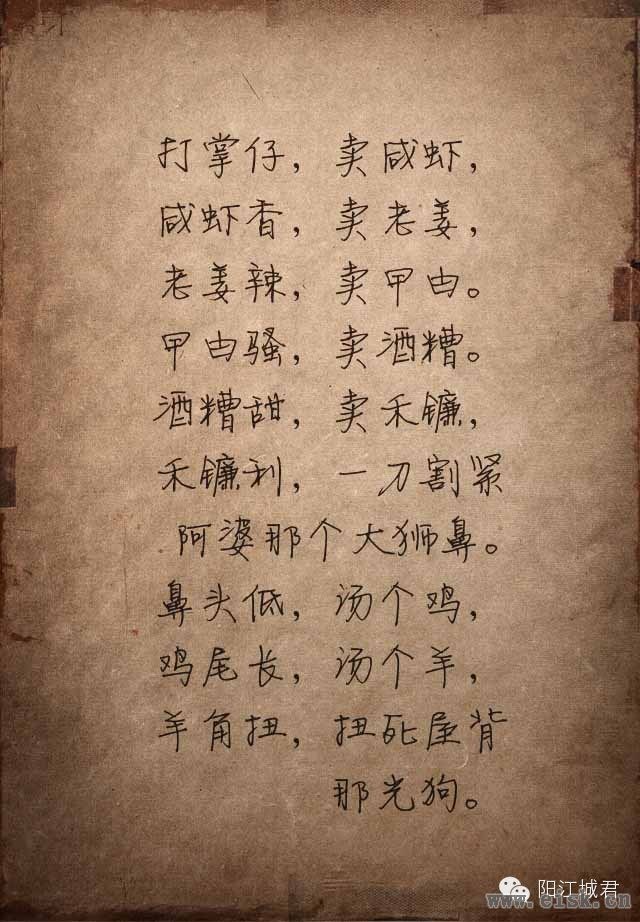 打掌仔，卖咸虾，
咸虾香，卖老姜，
老姜辣，卖曱甴。
曱甴骚，卖酒糟。
酒糟甜，卖禾镰，
禾镰利，一刀割紧
阿婆那个大狮鼻。
鼻头低，汤个鸡，
鸡尾长，汤个羊，
羊角扭，扭死屋背
那光狗。
阳江城君
www.e1sk.cn